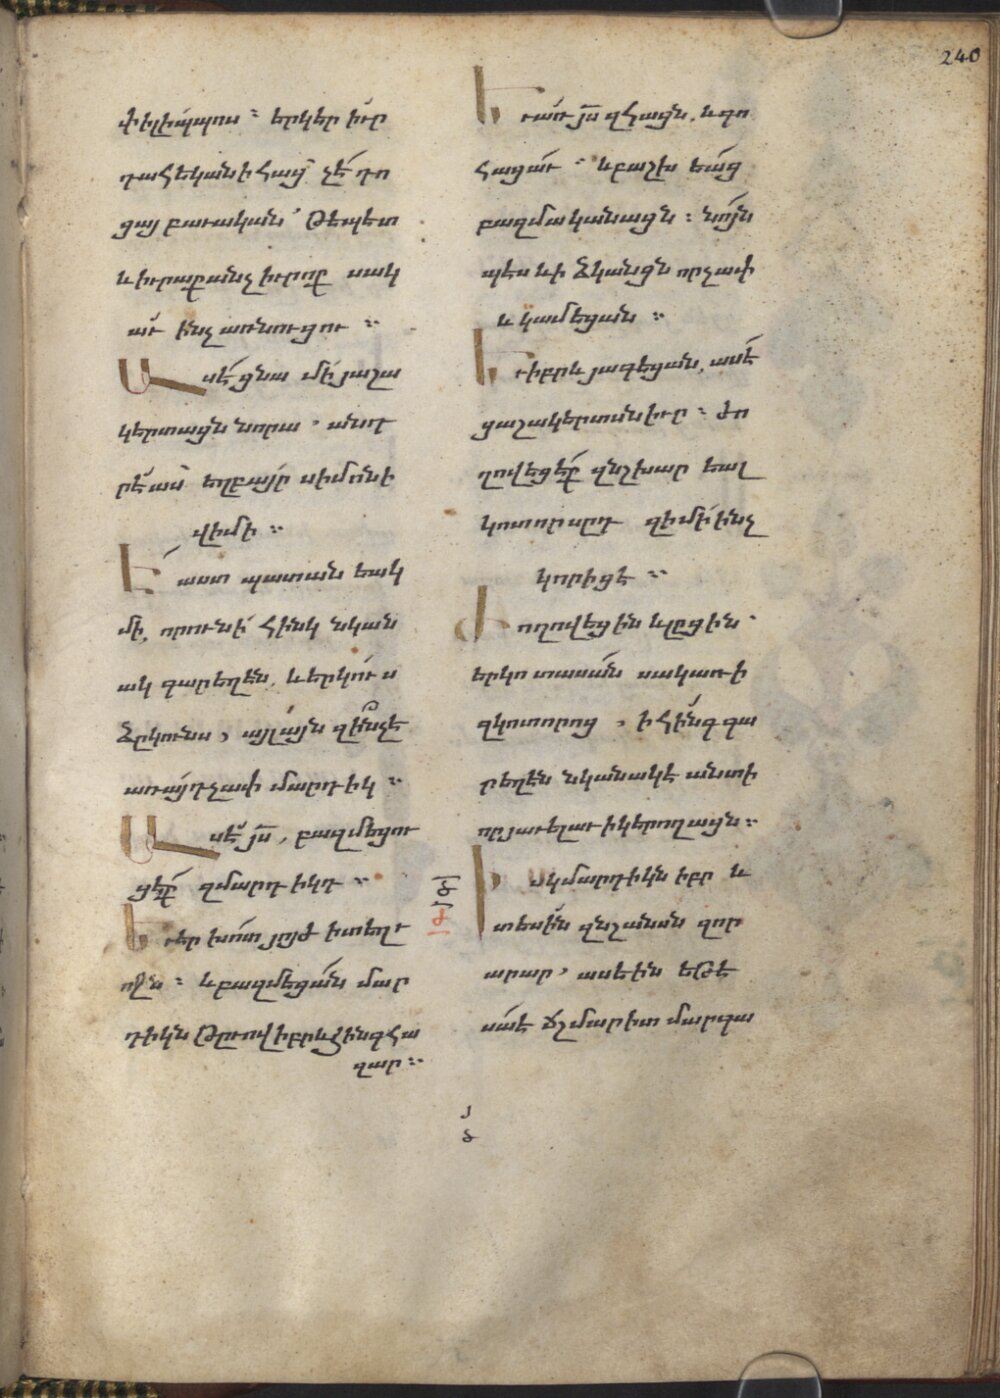 240
փիլիպպոս ։ երկերիւր
դահեկանի հաց՝ չէ՛ դո
ցայ բաւական՝ Թէպետ
և իւրաքանչիւրոք սակ
աւ ինչ առնուցու ։
Ասէ ցնա մի յաշա
կերտացն նորա ՝ անդ
րէաս եղբայր սիմոնի
վիմի ։
Է՛ աստ պատանեակ
մի, որունի հինկ նկան
ակ գարեղէն, և երկուս
ձըկունս, այլ այն զի՞նչ է
առ այդչափ մարդիկ ։
Ասէ յս̅, բազմեցու
ցէք զմարդիկդ ։
Եւ էր խոտ յոյժ ի տեղւ
ոջն ։ և բազմեցան մար
դիկն Թըւով իբրև հինգ հա
զար ։
Եւ առ յս̅ զհացն. և գո
հացաւ ։ և բաշխեաց
բազմականացն ։ նոյն
պէս և ի ձկանցն որչափ
և կամեցան ։
Եւ իբրև յագեցան, ասէ
ցաշակերտսն իւր ։ Ժո
ղովեցէք զնշխար եալ
կոտորսըդ զի մի ինչ
կորիցէ ։
Ժողովեցին և լըցին ՝
երկոտասան սակառի
զկոտորոց , ի հինգ գա
րեղէն նկանակէ անտի
որ յաւելաւ ի կերողացն ։
Իսկ մարդիկն իբր և
տեսին զնշանսն զոր
արար ՝ ասեին եԹէ
սա է ճշմարիտ մարգա